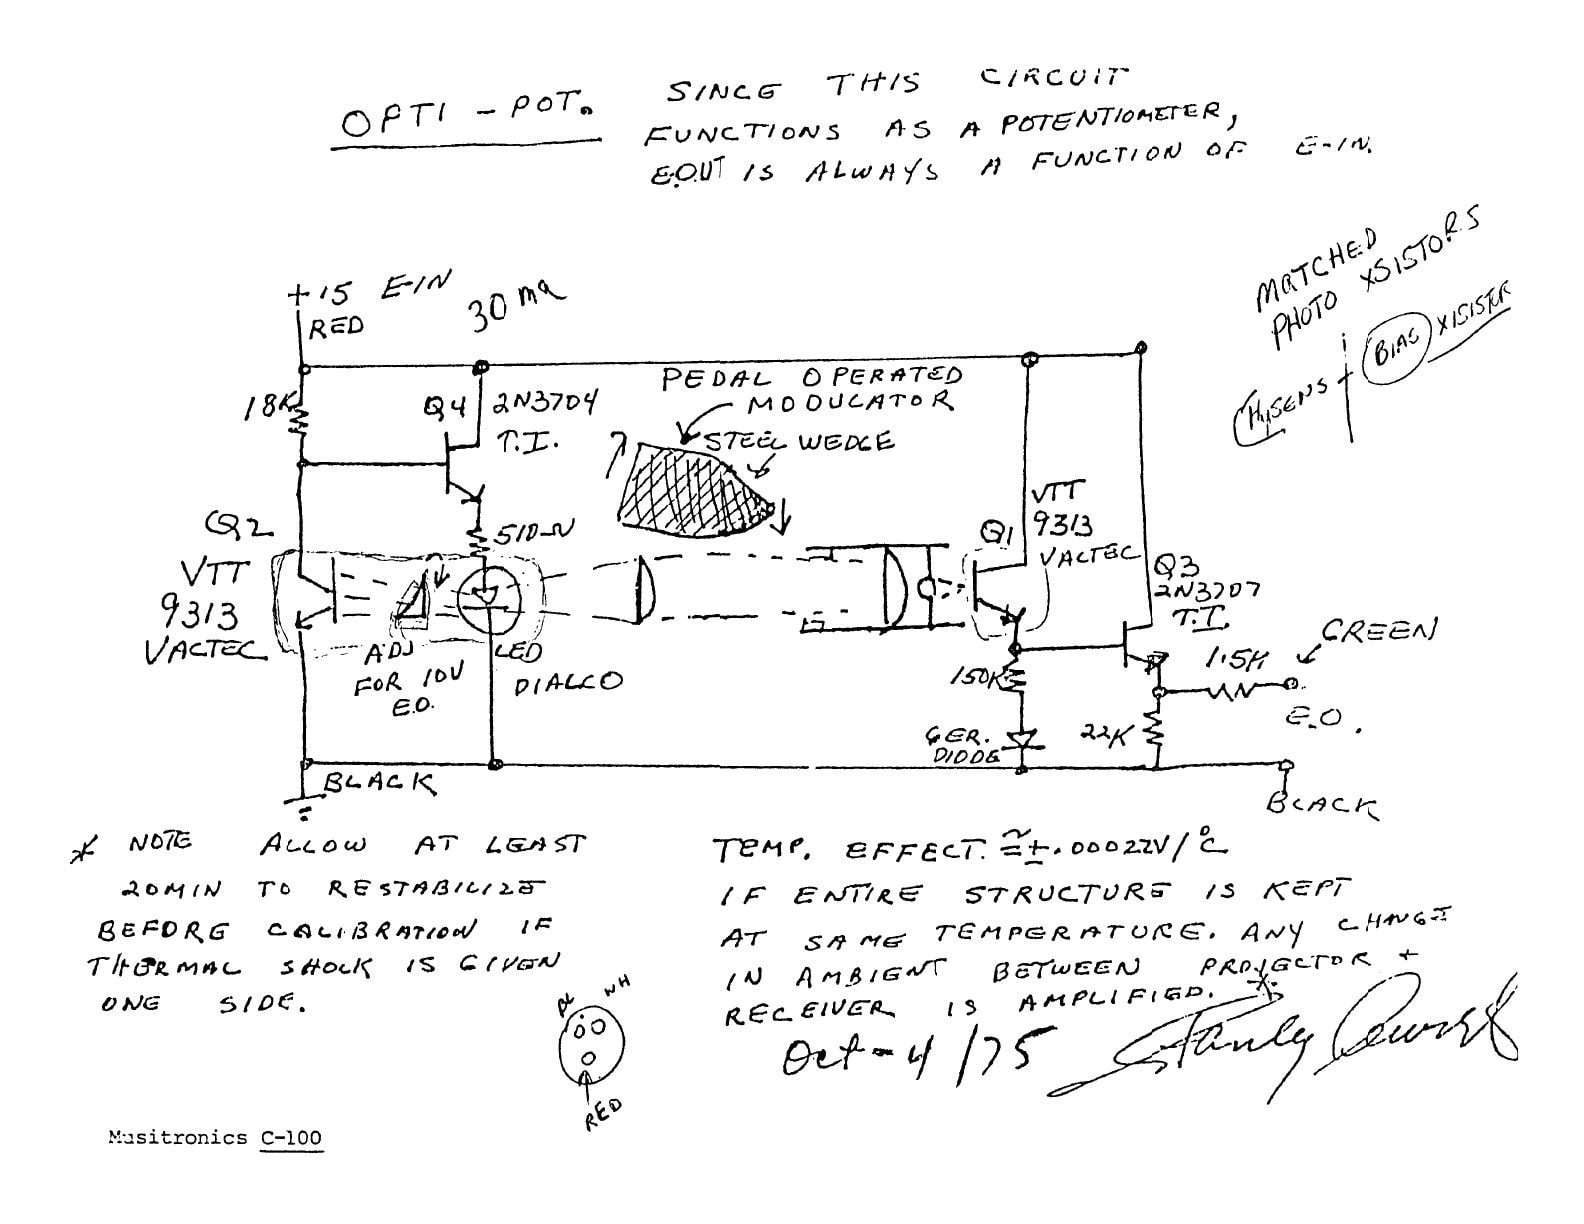 OPTI-POT. SINCE THIS CIRCUIT
FUNCTIONS AS A POTENTIOMETER,
E.OUT IS ALWAYS A FUNCTION OF E-IN.
MATCHED
PHOTO XSISTORS
BIAS XISISTER
+15 E-IN
RED
30 ma
18K
Q4
2N3704
T.I.
PEDAL OPERATED
MODUCATOR
STEEL WEDGE
510Ω
Q2
VTT
9313
VACTEC
ADJ
FOR 10V
E.O.
LED
DIALCO
Q1
VTT
9313
VALTEC
Q3
2N3707
T.I.
150K
GER.
DIODE
22K
1.5K
GREEN
E.O.
BLACK
BLACK
* NOTE ALLOW AT LEAST
20MIN TO RESTABILIZE
BEFORE CALIBRATION IF
THERMAL SHOCK IS GIVEN
ONE SIDE.
TEMP. EFFECT. ≅±.00022V/°C
IF ENTIRE STRUCTURE IS KEPT
AT SAME TEMPERATURE. ANY CHANGE
IN AMBIENT BETWEEN PROJECTOR +
RECEIVER IS AMPLIFIED. *
Oct-4/75 Stanley
BL
WH
RED
Musitronics C-100